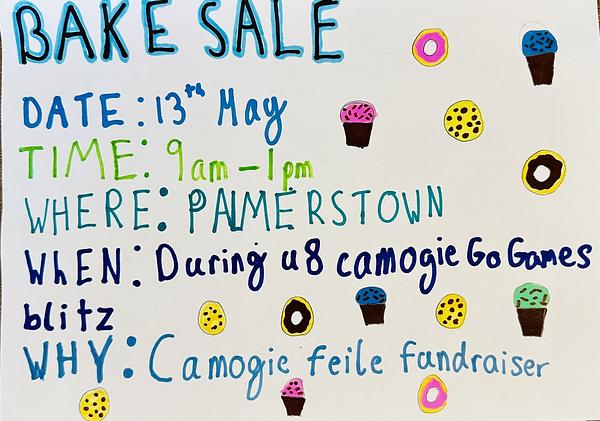 BAKE SALE
DATE: 13th May
TIME: 9am - 1pm
WHERE: PALMERSTOWN
WhEN: During u8 camogie Go Games
blitz
WHY: Camogie feile fundraiser